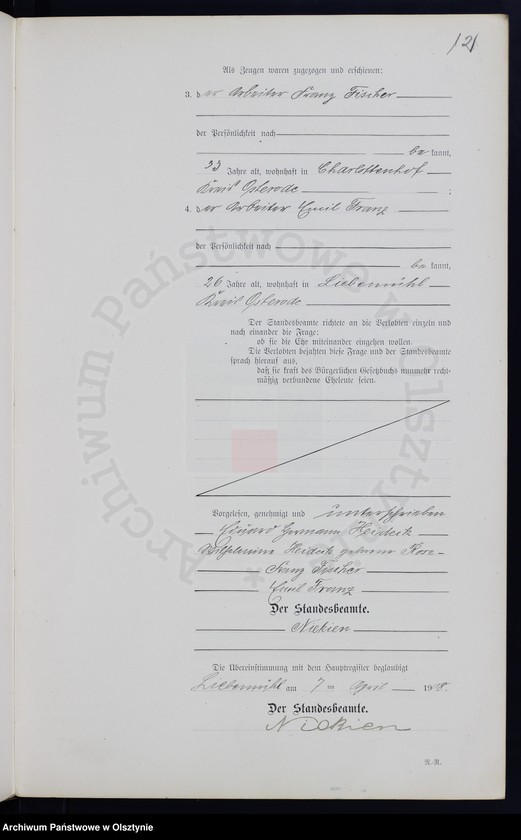 121
Als Zeugen waren zugezogen und erschienen:
3. der Arbeiter Franz Fischer
der Persönlichkeit nach
be kannt,
23 Jahre alt, wohnhaft in Charlottenhof
Kreis Osterode ;
4. der Arbeiter Emil Franz
der Persönlichkeit nach
be kannt,
26 Jahre alt, wohnhaft in Liebemühl
Kreis Osterode
Der Standesbeamte richtete an die Verlobten einzeln und
nach einander die Frage:
ob sie die Ehe miteinander eingehen wollen.
Die Verlobten bejahten diese Frage und der Standesbeamte
sprach hierauf aus,
daß sie kraft des Bürgerlichen Gesetzbuchs nunmehr recht-
mäßig verbundene Eheleute seien.
Vorgelesen, genehmigt und unterschrieben
Eduard Hermann Heideck
Wilhelmine Heideck geborene
Franz Fischer
Emil Franz
Der Standesbeamte.
Nickien
Die Übereinstimmung mit dem Hauptregister beglaubigt
Liebemühl am 7 ten April 1908.
Der Standesbeamte.
Nickien
N.-R.
Archiwum Państwowe w Olsztynie
Archiwum Państwowe w Olsztynie